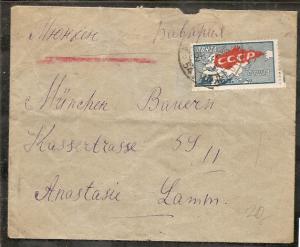 Мюнхен Бавария
ПОЧТА
СССР
München Bayern
59
II
Anastasie Lamm.
20